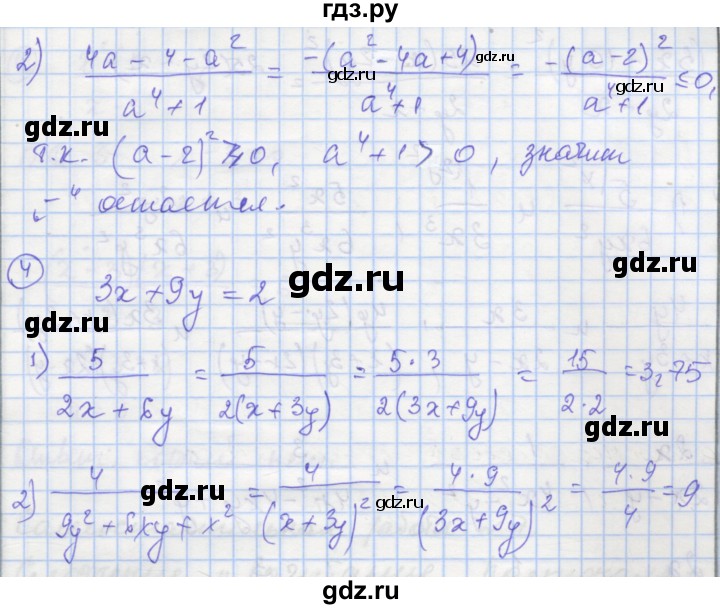 гдз.ру
2) (4a - 4 - a²)/(a⁴ + 1) = -(a² - 4a + 4)/(a⁴ + 1) = -(a - 2)²/(a⁴ + 1) ≤ 0,
gdz.ru gdz.ru gdz.ru gdz.ru
т.к. (a - 2)² ≥ 0, a⁴ + 1 > 0, значит
gdz.ru
„-" остается.
gdz.ru gdz.ru
④ 3x + 9y = 2
gdz.ru gdz.ru gdz.ru
1) 5/(2x + 6y) = 5/(2(x + 3y)) = 5·3/(2(3x + 9y)) = 15/(2·2) = 3,75
gdz.ru gdz.ru
2) 4/(9y² + 6xy + x²) = 4/(x + 3y)² = 4·9/(3x + 9y)² = 4·9/4 = 9
gdz.ru gdz.ru gdz.ru
gdz.ru